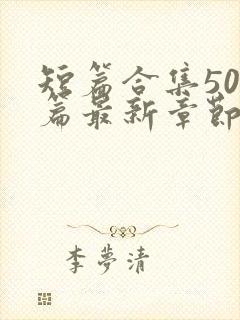 短篇合集50
篇最新章節
李夢清